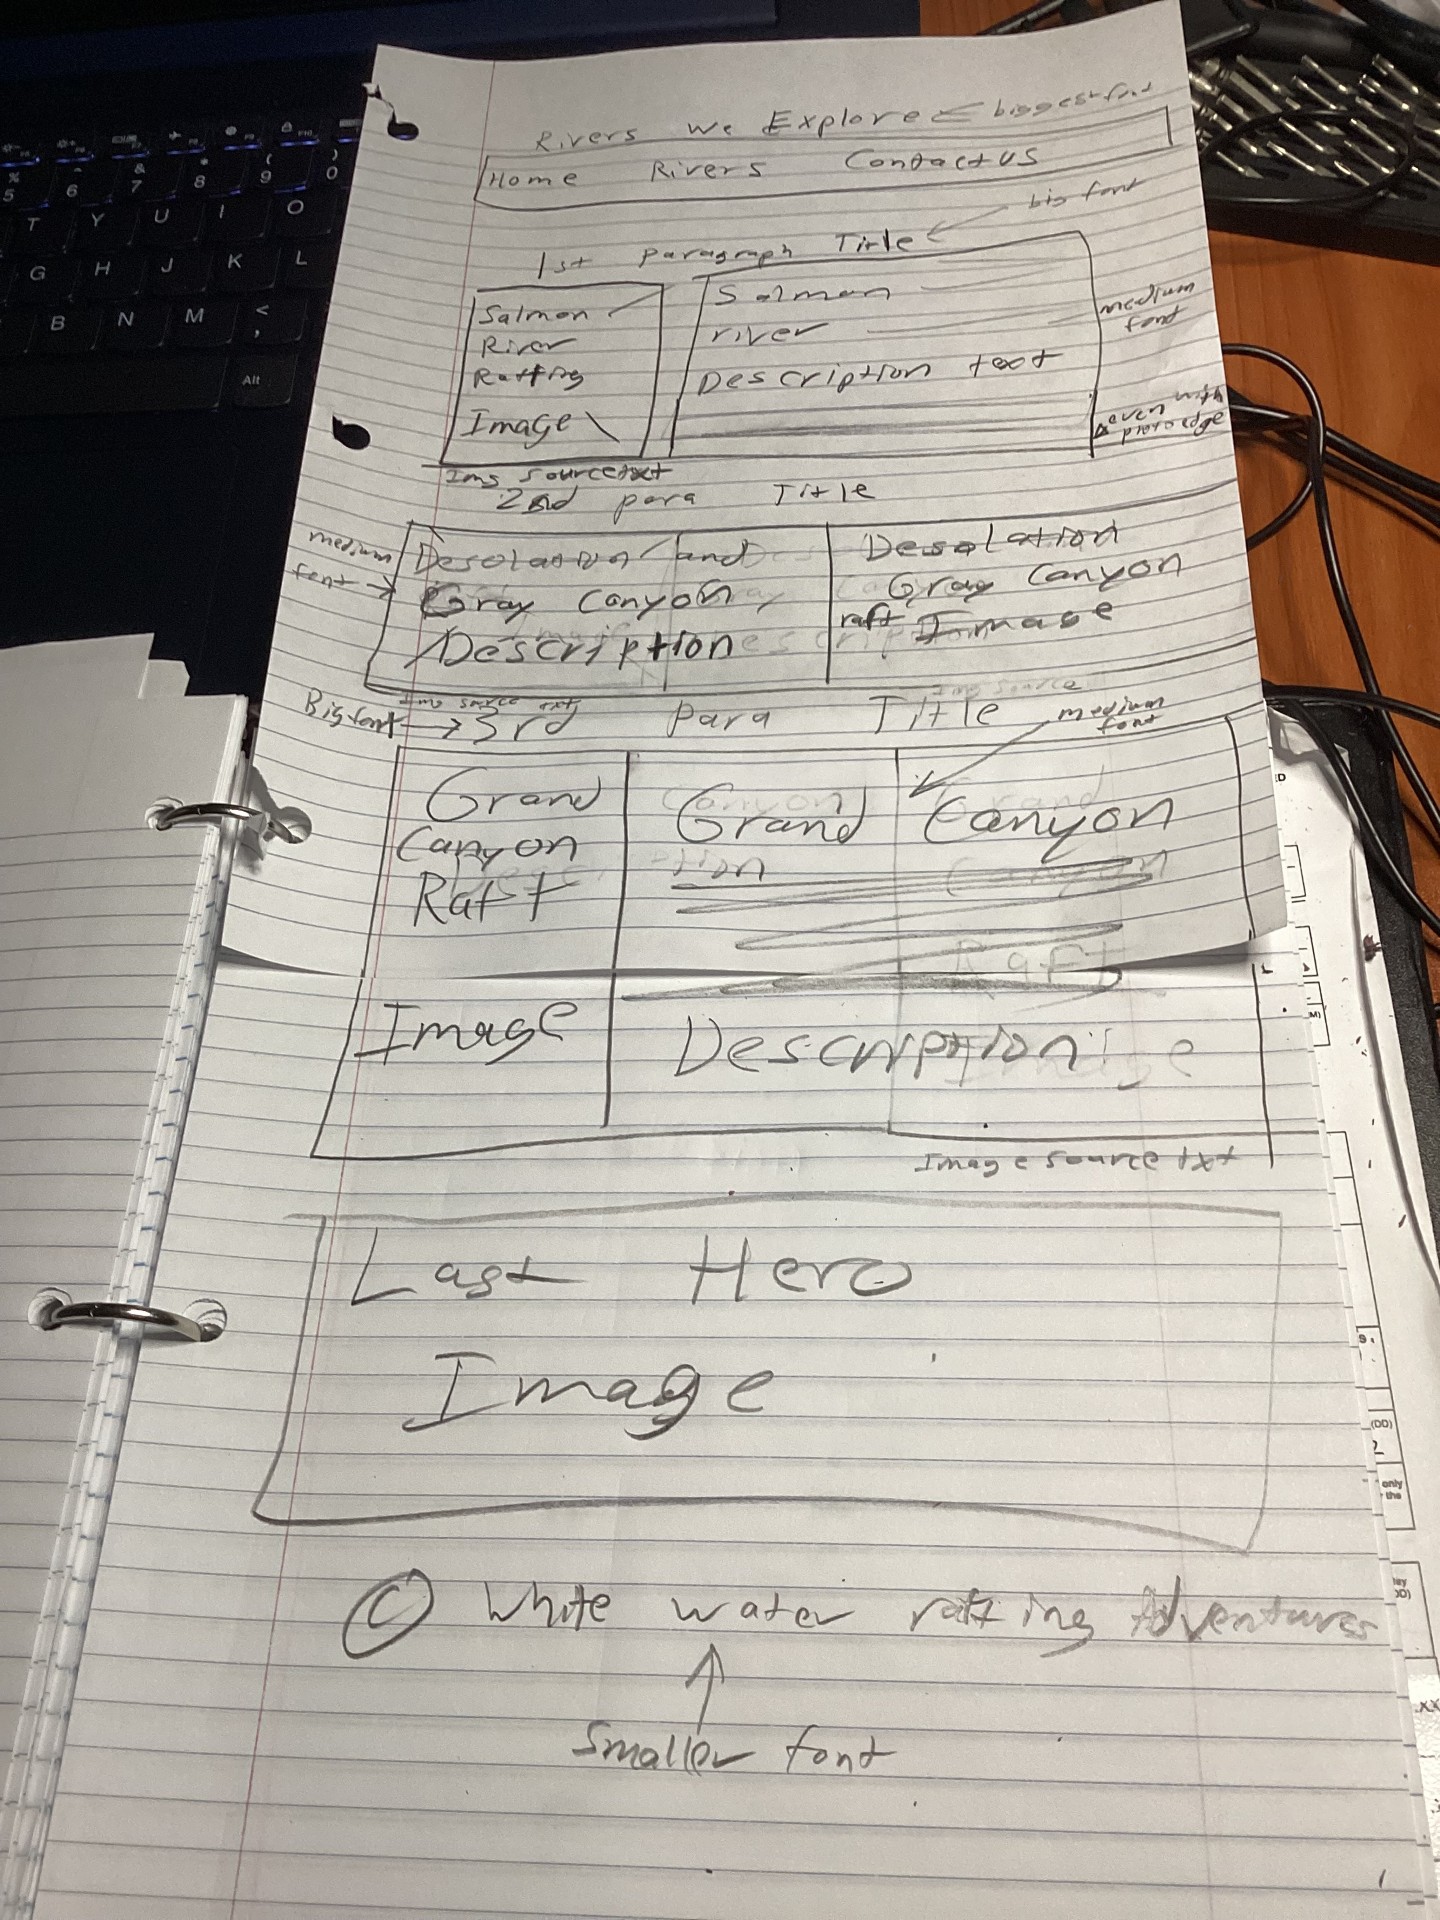 Rivers We Explore ← biggest font
Home Rivers Contact US
big font
1st Paragraph Title
Salmon
River
Rafting
Image
Salmon
river
Description text
medium
font
even with
photo edge
Img source txt
2nd para Title
medium
font
Desolation and
Gray Canyon
Description
Desolation
Gray Canyon
raft Image
Img source txt
Img source
Big font → 3rd para Title
medium
font
Grand
Canyon
Raft
Image
Grand Canyon
Description
Image source txt
Last Hero
Image
© White water rafting Adventures
Smaller font